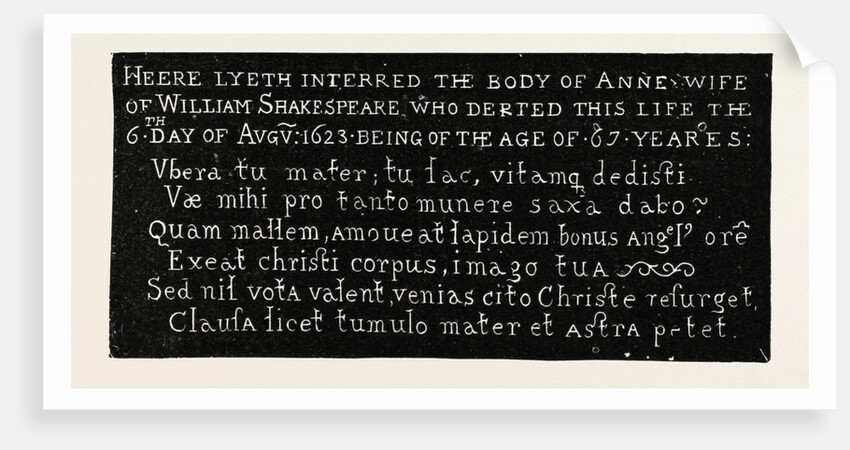 HEERE LYETH INTERRED THE BODY OF ANNE WIFE
OF WILLIAM SHAKESPEARE WHO DEPTED THIS LIFE THE
6·TH DAY OF AVGṼ:1623·BEING OF THE AGE OF·67·YEARES:
Vbera tu mater; tu lac, vitamq dediſti
Væ mihi pro tanto munere saxa dabo?
Quam mallem, AMoueat lapidem bonus Angel' orê
Exeat chriſti corpus, imago tuA
Sed nil votA valent, venias cito Chriſte reſurget,
ClauſA licet tumulo mater et AſtrA petet.